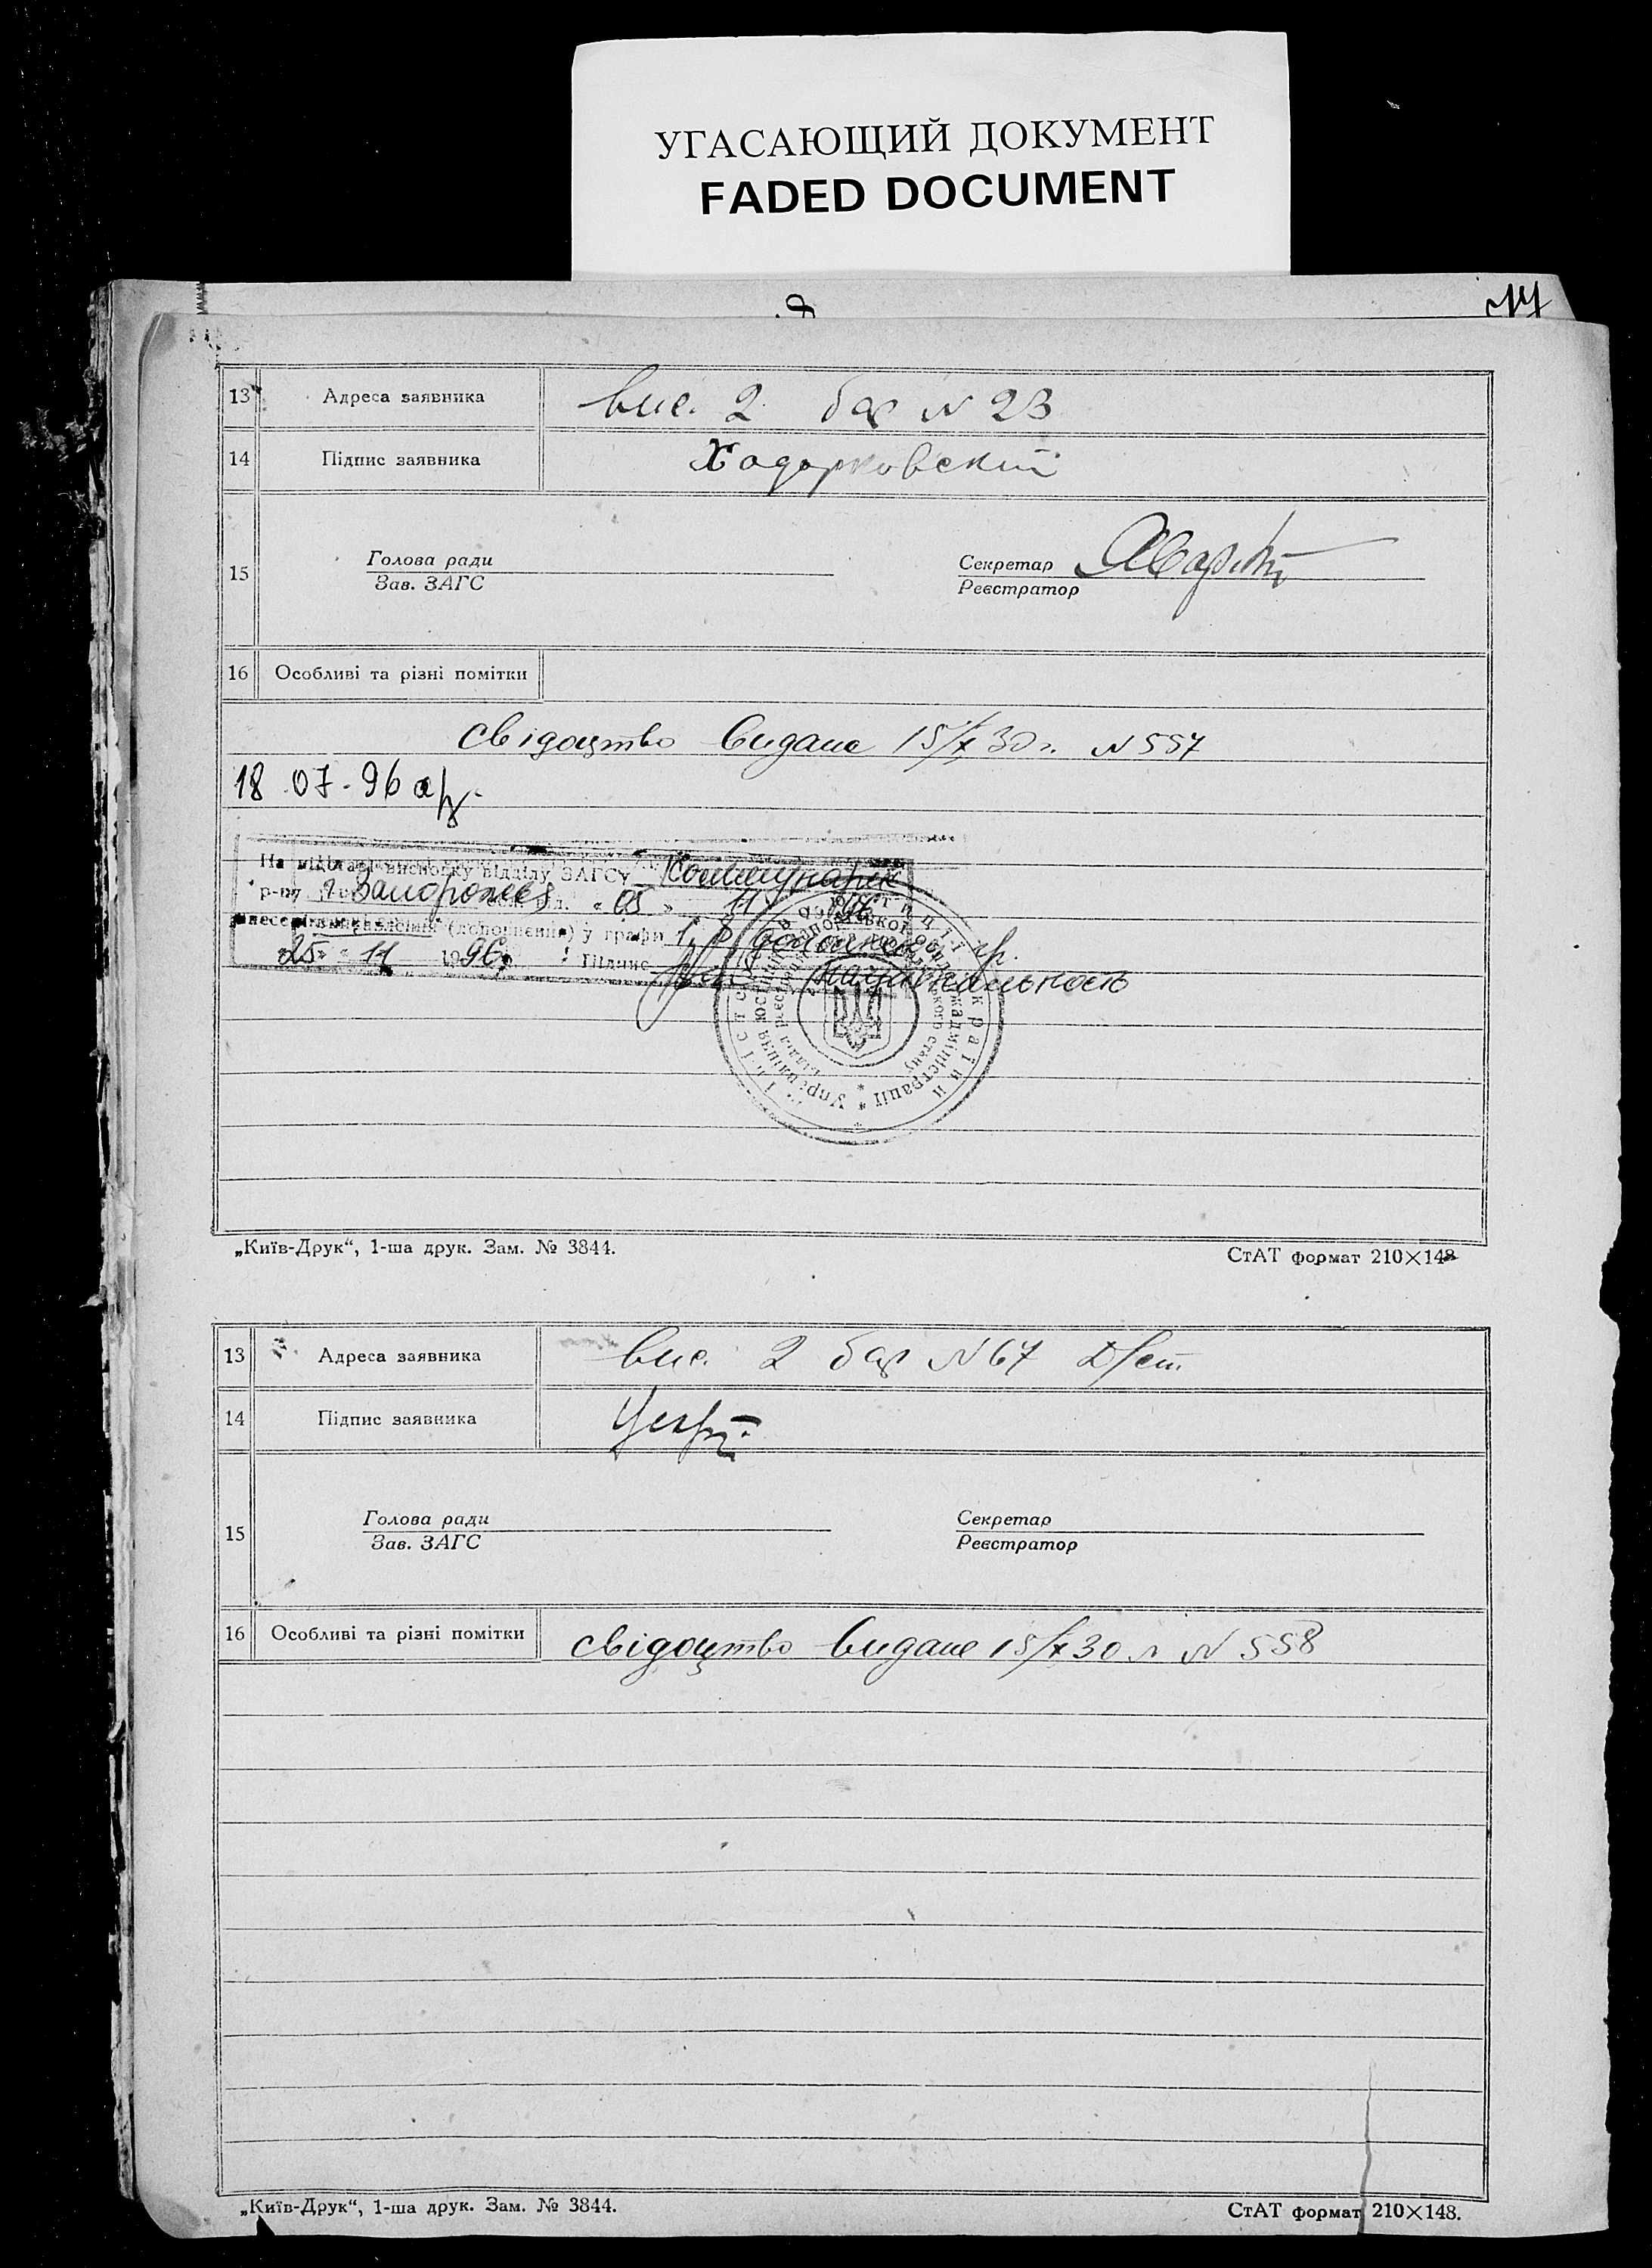 УГАСАЮЩИЙ ДОКУМЕНТ
FADED DOCUMENT
13 Адреса заявника вис. 2 бар N 23
14 Підпис заявника Ходорковский
15 Голова ради
Зав. ЗАГС
Секретар
Реєстратор
16 Особливі та різні помітки
свідоцтво видане 15/X 30 г. N 557
18 07-96
висновку відділу ЗАГСу
р-ну г. Запорожья від. « 05 » 11
(доповнення) у графи 1, 8
« 25 » 11 1996 Підпис
национальность
„Київ-Друк“, 1-ша друк. Зам. № 3844.
СтАТ формат 210×148
13 Адреса заявника вис. 2 бар N 67
14 Підпис заявника
15 Голова ради
Зав. ЗАГС
Секретар
Реєстратор
16 Особливі та різні помітки свідоцтво видане 15/X 30 г. N 558
„Київ-Друк“, 1-ша друк. Зам. № 3844.
СтАТ формат 210×148.